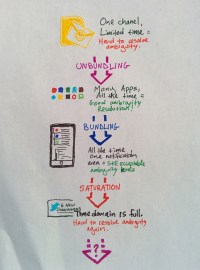 One chanel,
Limited time =
Hard to resolve
ambiguity.
UNBUNDLING
Many Apps,
All the time =
Good ambiguity
Resolution!
BUNDLING
All the time
One notification
area = Still acceptable
ambiguity levels
SATURATION
Time domain is full.
Hard to resolve ambiguity
again.
?